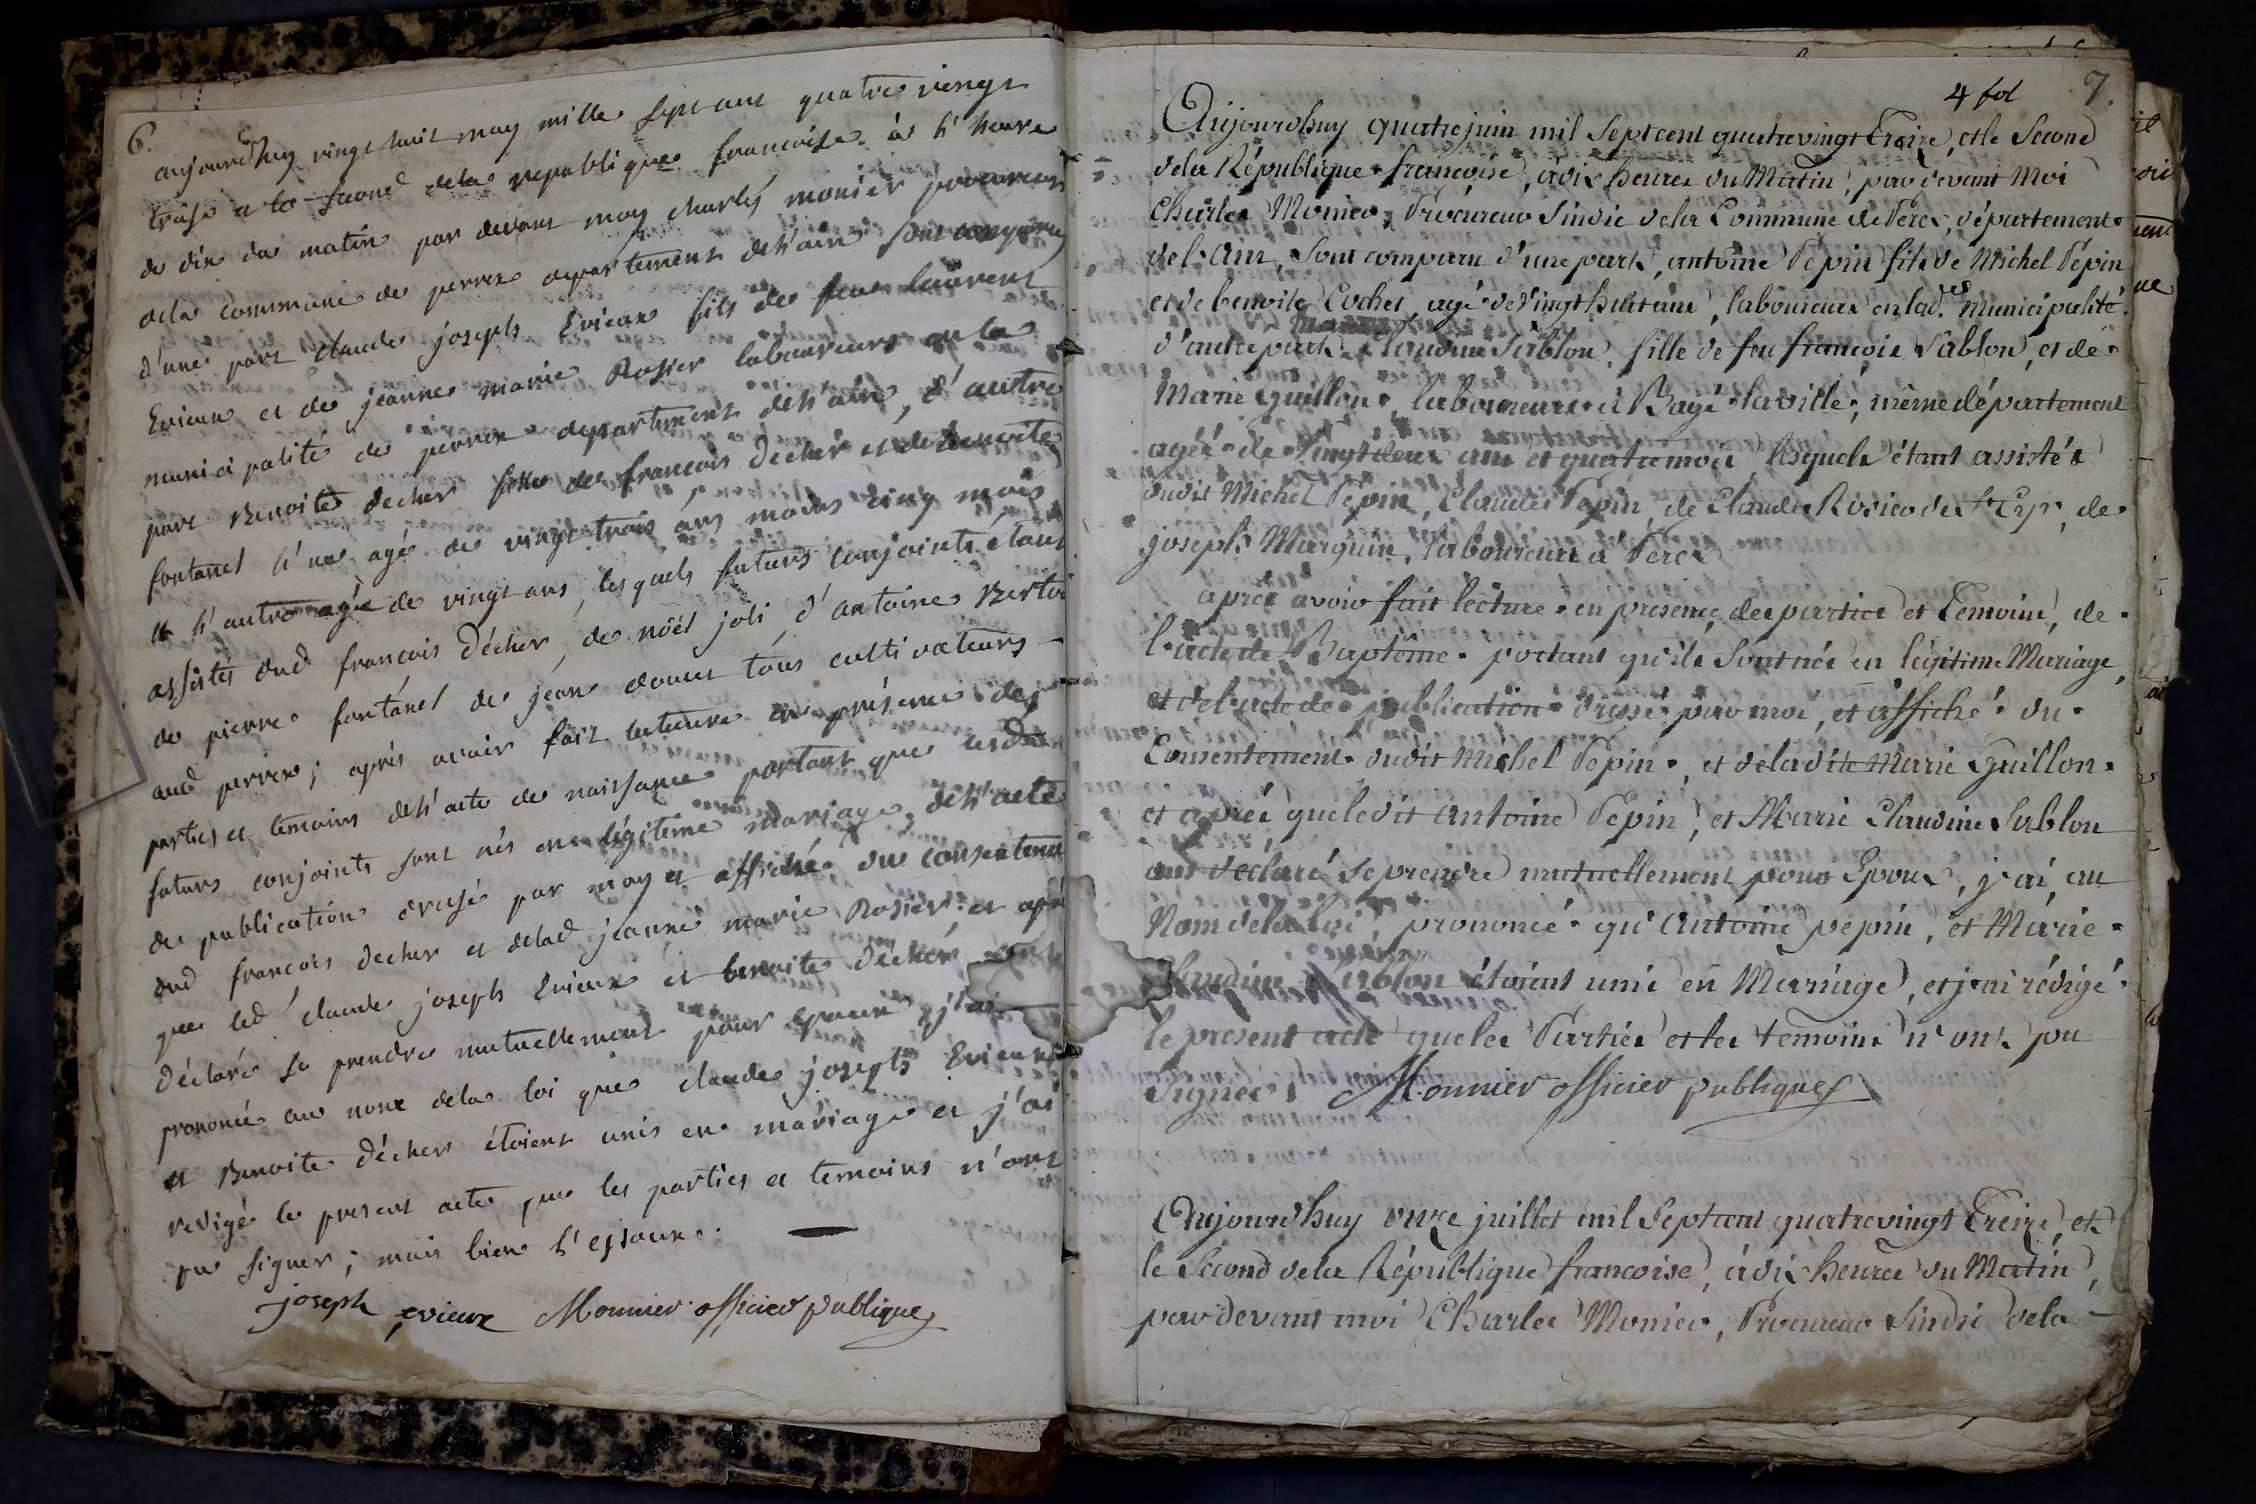 6.
aujourdhuy vingt huit may mille sept cent quatre vingt
treise et le second dela republique francoise à l'heure
de dix du matin par devant moy charles monier procureur
dela commune de perrex departement de l'ain sont comparus
d'une part claude joseph Evieux fils de feu laurent
Evieux et de jeanne marie Rosier laboureurs en la
municipalité de perrex departement de l'ain, d'autre
part Benoite decher fille de francois decher et de benoite
fontanel l'un agé de vingt trois ans moins cinq mois
et l'autre agée de vingt ans, lesquels futurs conjoints étant
assistés dud francois décher, de nöel joli d'antoine Berto
de pierre fontanel de jean doucet tous cultivateurs
aud perrex; après avoir fait lecture en présence des
parties et temoins de l'acte de naissance portant que lesd
futurs conjoints sont nés en légiteme mariage, de l'acte
de publication drésé par moy et affiché du consentement
dud francois decher et delad jeanne marie Rosier et après
que led claude joseph Evieux et benoite décher ont
déclaré se prendre mutuellement pour epoux j'ai
prononcé au nom dela loi que claude joseph Evieux
et Benoite décher étoient unis en mariage et j'ai
redigé le present acte que les parties et temoins n'ont
pu signer; mais bien l'epoux.
joseph evieux Monnier officier publique
4 fol 7.
Aujourdhuy quatre juin mil Sept cent quatrevingt Treize, et le Second
dela République francoise, à dix heures du Matin, par devant Moi
Charles Monier, Procureur Sindic dela Commune de Perex, département
de l'ain, Sont comparu d'une part, antoine Pepin fils de Michel Pépin
et de benoite Cochet agé de Vingt huit ans, laboureurs en lad.e Municipalité
d'autre part Claudine Sablon, fille de feu francois Sablon, et de
Marie Guillon, laboureurs à Bagé la ville, même département
agéé de Vingt deux ans et quatre mois, lesquels étant assistés
dudit Michel Pepin, Claude Pepin, de Claude Rosier de St Cyr, de
joseph Marguin, laboureurs a Perex
après avoir fait lecture en presence des parties et Temoins, de
l'acte de Baptême portant qu'ils Sont nés en légitime Mariage,
et de l'acte de publication dressé par moi, et affiché du
Consentement dudit Michel Pepin, et de ladite Marie Guillon
et après que ledit antoine Pepin, et Marie Claudine Sablon
ont déclaré Se prendre mutuellement pour Epoux, j'ai au
Nom dela loi, prononcé qu'antoine pepin, et Marie
Claudine Sablon étoient unis en Marriage, et j'ai rédigé
le present acte que les Parties et les temoins n'ont pu
Signer. Monnier officier publique
Aujourdhuy onze juillet mil Sept cent quatrevingt Treize, et
le Second dela République francoise, à dix heures du Matin,
par devant moi Charles Monier, Procureur Sindic dela